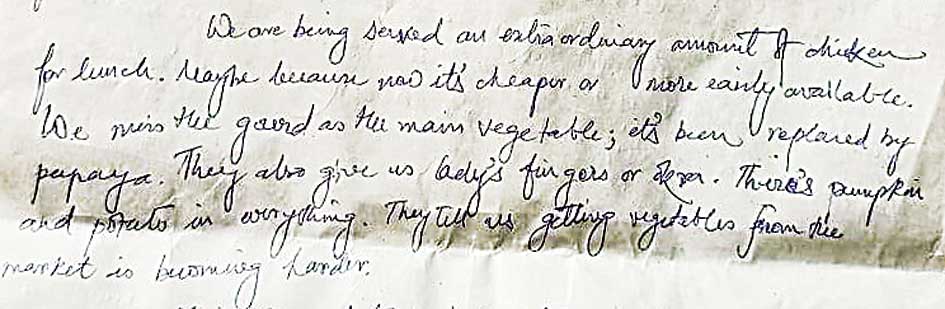 We are being served an extraordinary amount of chicken
for lunch. Maybe because now it's cheaper or more easily available.
We miss the gourd as the main vegetable; it's been replaced by
papaya. They also give us lady's fingers or okra. There's pumpkin
and potato in everything. They tell us getting vegetables from the
market is becoming harder.